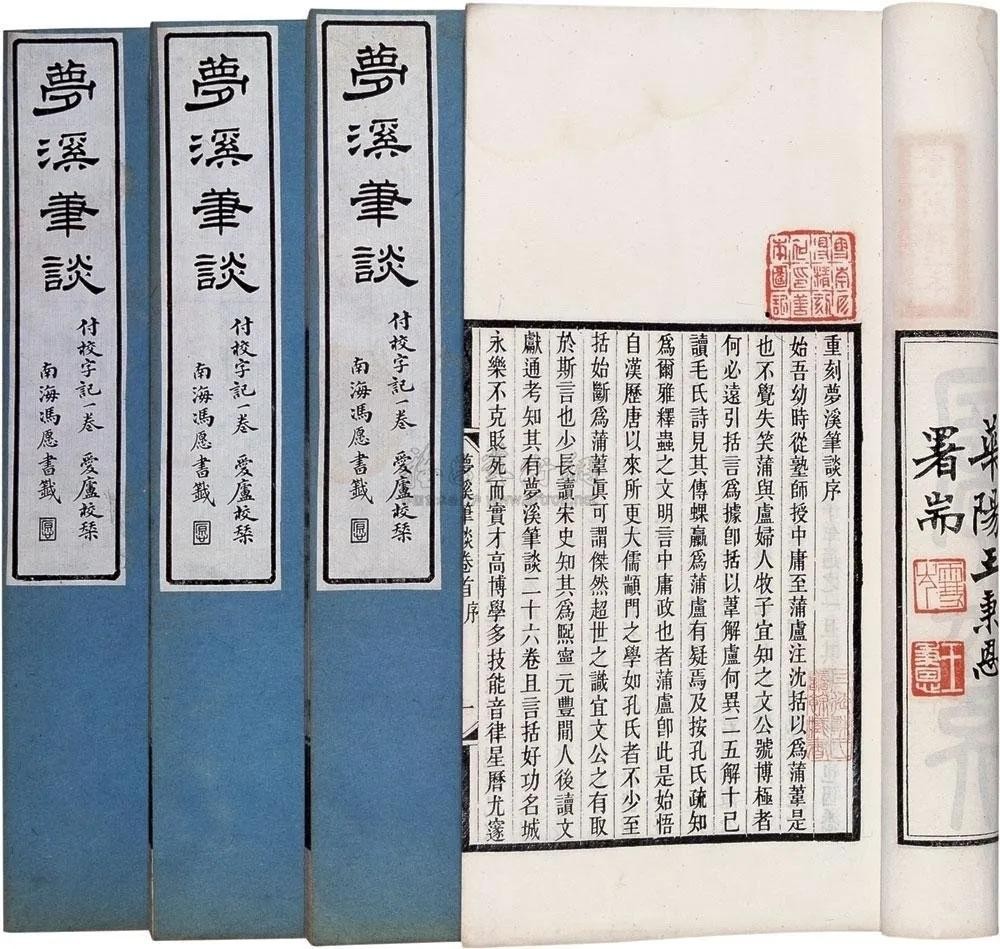 華陽王秉恩
署耑
王秉恩
重刻夢溪筆談序
始吾幼時從塾師授中庸至蒲盧注沈括以爲蒲葦是
也不覺失笑蒲與盧婦人牧子宜知之文公號博極者
何必遠引括言爲據卽括以葦解盧何異二五解十已
讀毛氏詩見其傳蜾蠃爲蒲盧有疑焉及按孔氏疏知
爲爾雅釋蟲之文明言中庸政也者蒲盧卽此是始悟
自漢歷唐以來所更大儒顓門之學如孔氏者不少至
括始斷爲蒲葦眞可謂傑然超世之識宜文公之有取
於斯言也少長讀宋史知其爲熙寧元豐間人後讀文
獻通考知其有夢溪筆談二十六卷且言括好功名城
永樂不克貶死而實才高博學多技能音律星曆尤邃
夢溪筆談卷首 序 一
夢溪筆談
付校字記一卷 愛廬校栞
南海馮愿書籤
夢溪筆談
付校字記一卷 愛廬校栞
南海馮愿書籤
夢溪筆談
付校字記一卷 愛廬校栞
南海馮愿書籤